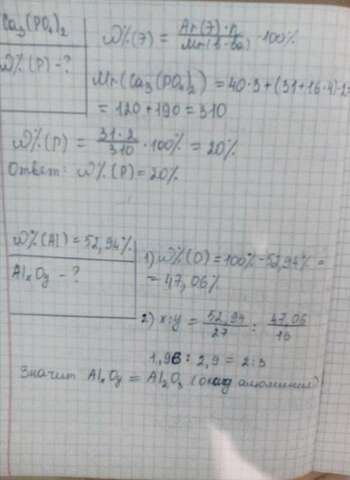 Ca₃(PO₄)₂
W%(P) - ?
W%(Э) = Ar(Э)·n / Mr(в-ва) · 100%
Mr(Ca₃(PO₄)₂) = 40·3+(31+16·4)·2=
= 120 + 190 = 310
W%(P) = 31·2 / 310 · 100% = 20%
Ответ: W%(P) = 20%
W%(Al) = 52,94%
AlxOy - ?
1) W%(O) = 100% - 52,94% =
= 47,06%
2) x:y = 52,94 / 27 : 47,06 / 16
1,96 : 2,9 = 2:3
Значит AlxOy = Al₂O₃ (оксид алюминия)